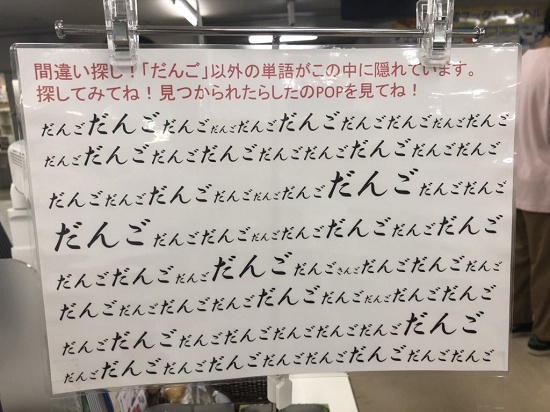 間違い探し!「だんご」以外の単語がこの中に隠れています。
探してみてね!見つかられたらしたのPOPを見てね!
だんごだんごだんごだんごだんごだんごだんごだんごだんごだんご
だんごだんごだんごだんごだんごだんごだんごだんごだんご
だんごだんごだんごだんごだんごだんごだんごだんごだんご
だんごだんごだんごだんごだんごだんごだんごだんご
だんごだんごだんごだんごだんごさんごだんごだんごだんご
だんごだんごだんごだんごだんごだんごだんごだんごだんご
だんごだんごだんごだんごだんごだんごだんごだんご
だんごだんごだんごだんごだんごだんごだんごだんごだんご